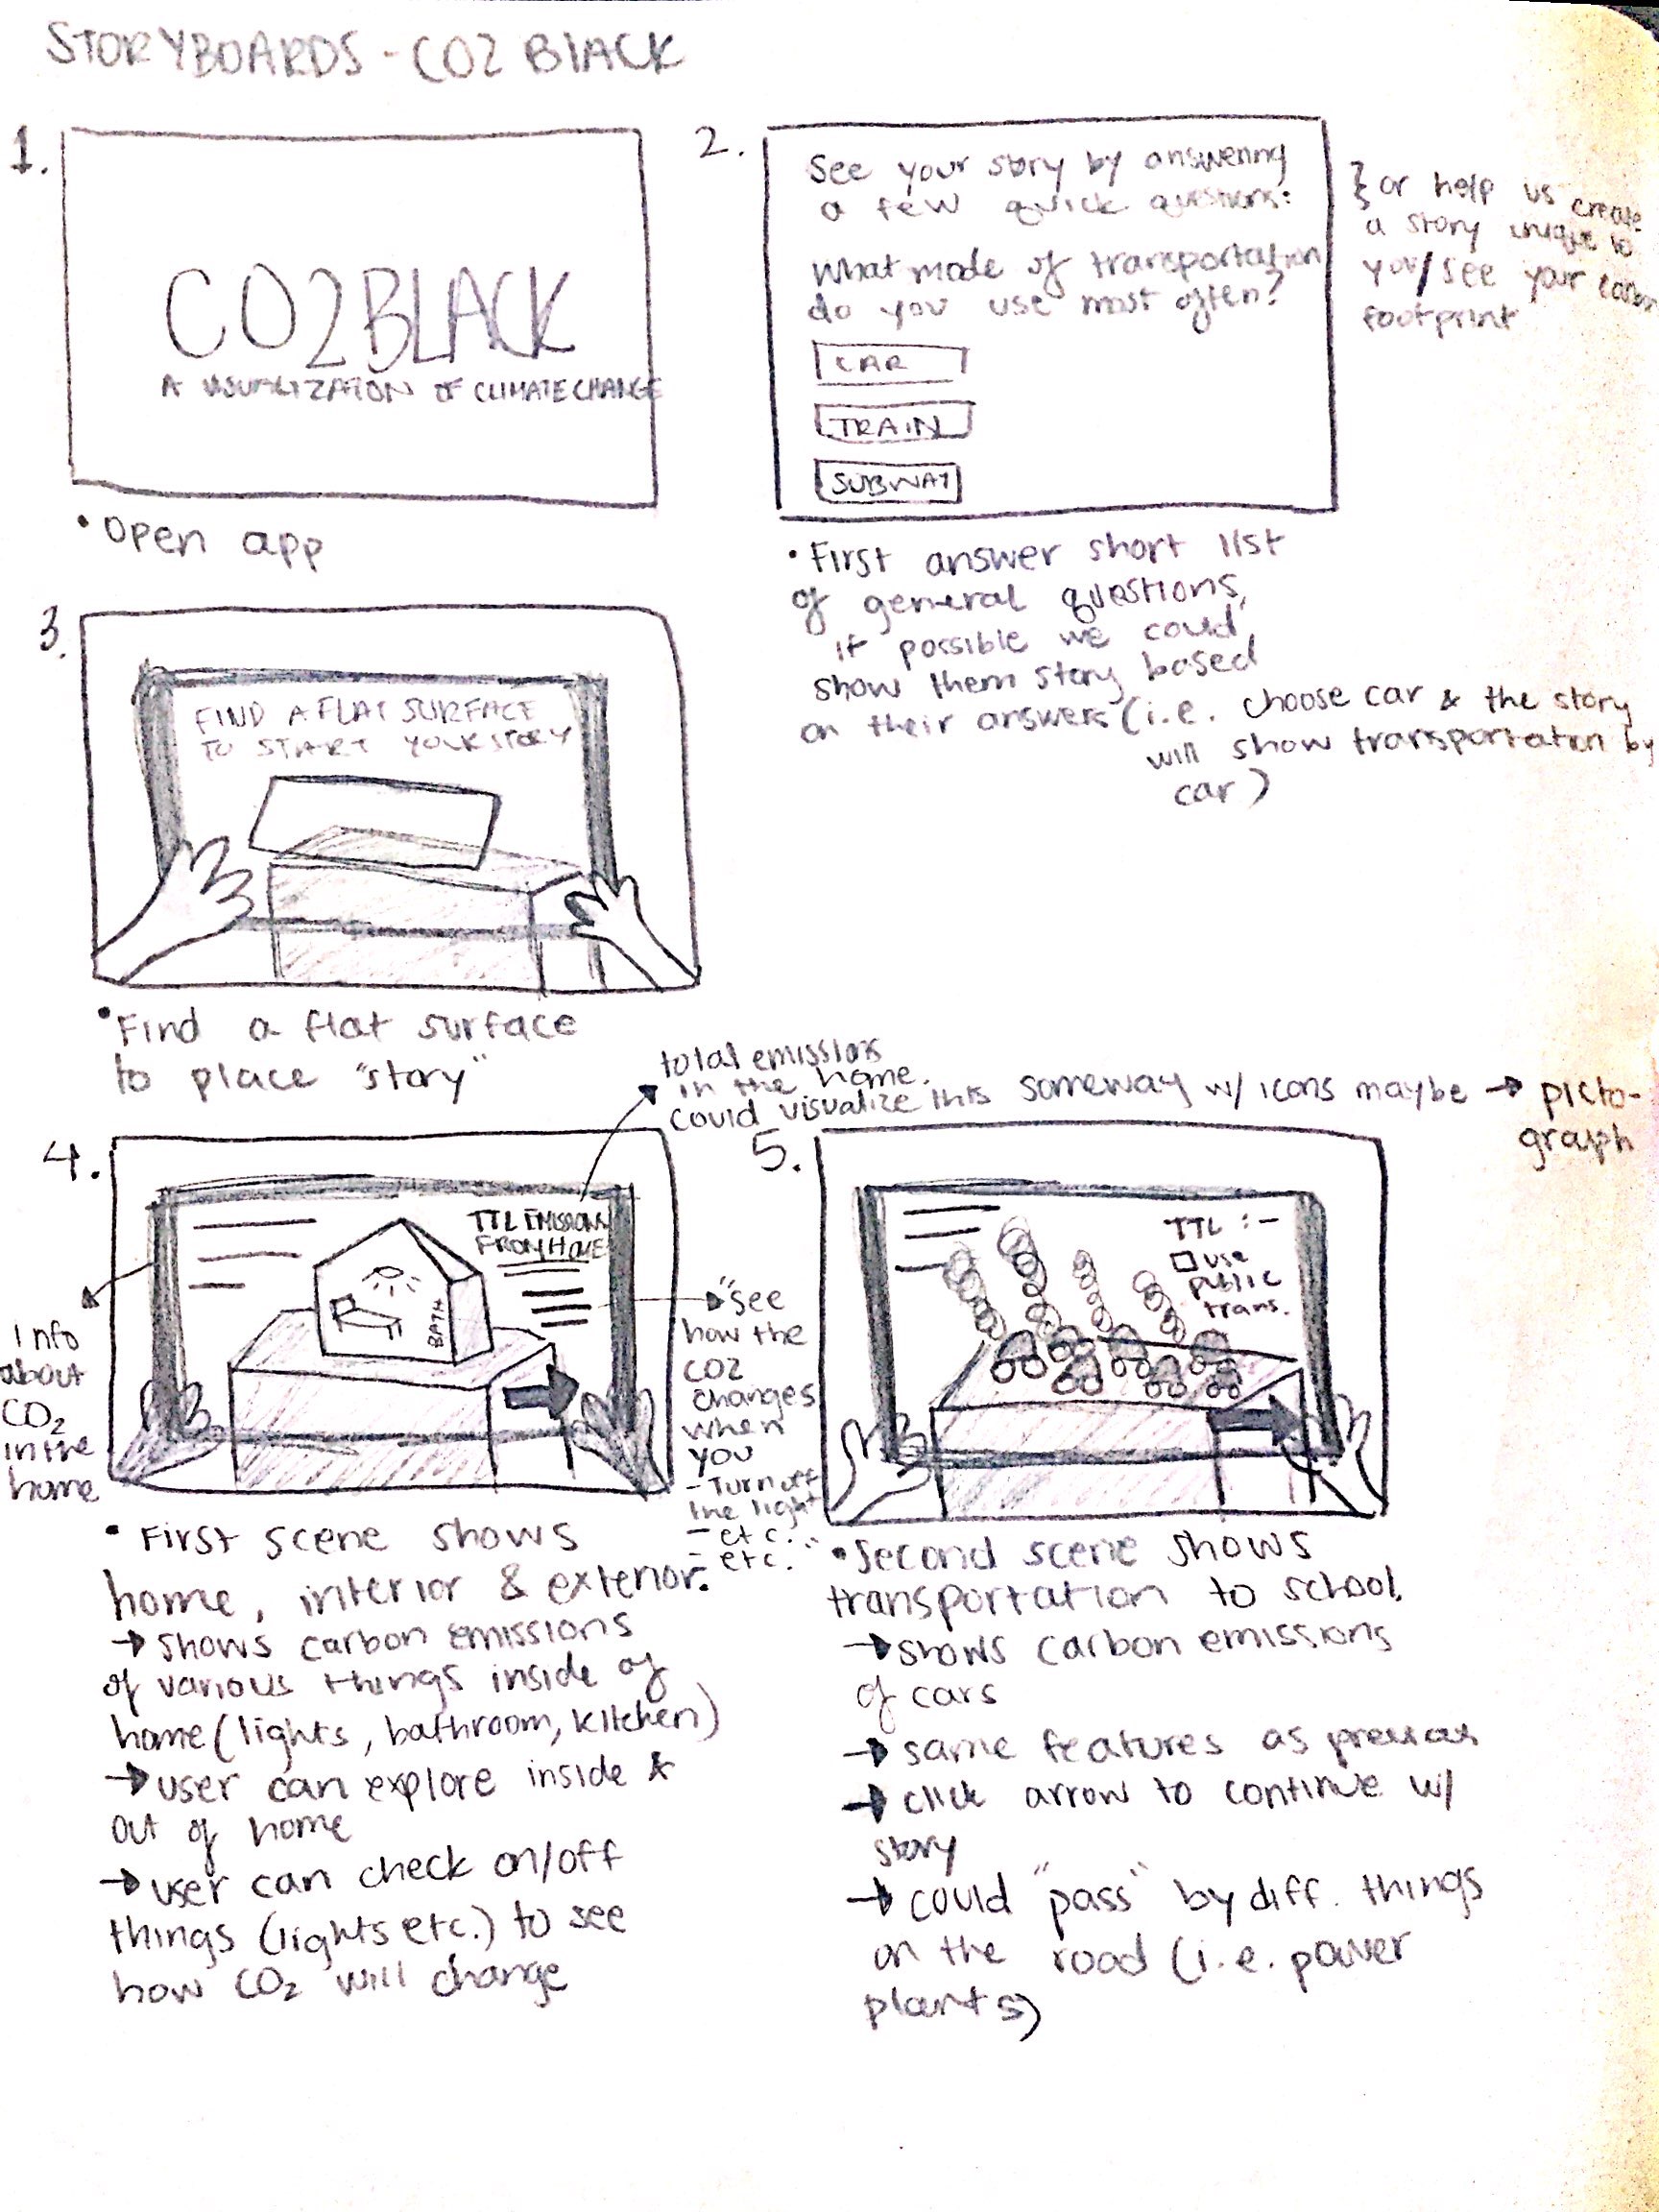 STORYBOARDS - CO2 BLACK
1.
CO2BLACK
A VISUALIZATION OF CLIMATE CHANGE
• Open app
2.
See your story by answering
a few quick questions:
What mode of transportation
do you use most often?
CAR
TRAIN
SUBWAY
} or help us create
a story unique to
you/see your carbon
footprint
• First answer short list
of general questions,
if possible we could
show them story based
on their answers (i.e. choose car & the story
will show transportation by
car)
3.
FIND A FLAT SURFACE
TO START YOUR STORY
• Find a flat surface
to place "story"
total emissions
in the home.
could visualize this someway w/ icons maybe → picto-
graph
4.
TTL EMISSIONS
FROM HOME
BATH
Info
about
CO2
in the
home
"see
how the
CO2
changes
when
you
- Turn off
the light
- etc.
- etc."
• First scene shows
home, interior & exterior.
→ shows carbon emissions
of various things inside of
home (lights, bathroom, kitchen)
→ user can explore inside &
out of home
→ user can check on/off
things (lights etc.) to see
how CO2 will change
5.
TTL : -
□ use
public
trans.
• Second scene shows
transportation to school.
→ shows carbon emissions
of cars
→ same features as previous
→ click arrow to continue w/
story
→ could "pass" by diff. things
on the road (i.e. power
plants)